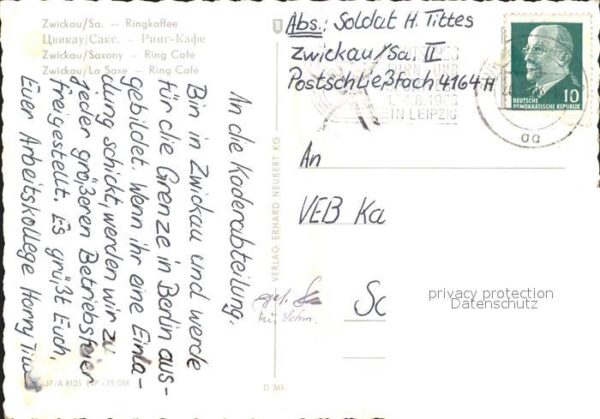 Zwickau/Sa. — Ringkaffee
Цвикау/Сакс. — Ринг-Кафе
Zwickau/Saxony — Ring Café
Zwickau/La Saxe — Ring Café
Abs.: Soldat H. Tittes
Zwickau/Sa. II
Postschließfach 4164 H
IN LEIPZIG
10
DEUTSCHE
DEMOKRATISCHE REPUBLIK
aa
An die Kaderabteilung.
Bin in Zwickau und werde
für die Grenze in Berlin aus-
gebildet. Wenn ihr eine Einla-
dung schickt, werden wir zu
jeder größeren Betriebsfeier
freigestellt. Es grüßt Euch,
Euer Arbeitskollege Harry
VERLAG ERHARD NEUBERT KG
An
VEB Ka
Sc
gel.
D 365
A 8105 EVP -.15 DM
privacy protection
Datenschutz